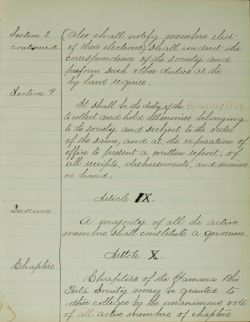 Section 3
continued
(Also shall notify members elect
of their election.) Shall conduct the
correspondence of the society and
perform such other duties as the
by-laws require.
Section 4
It shall be the duty of the
to collect and hold all monies belonging
to the society and subject to the order
of the same, and at the expiration of
office to present a written report, of
all receipts, disbursements, and monies
on hand.
Article IX.
Quorum
A majority of all the active
members shall constitute a quorum.
Article X.
Chapters
Chapters of the Gamma Phi
Beta Society may be granted to
other colleges by the unanimous vote
of all active members of chapters